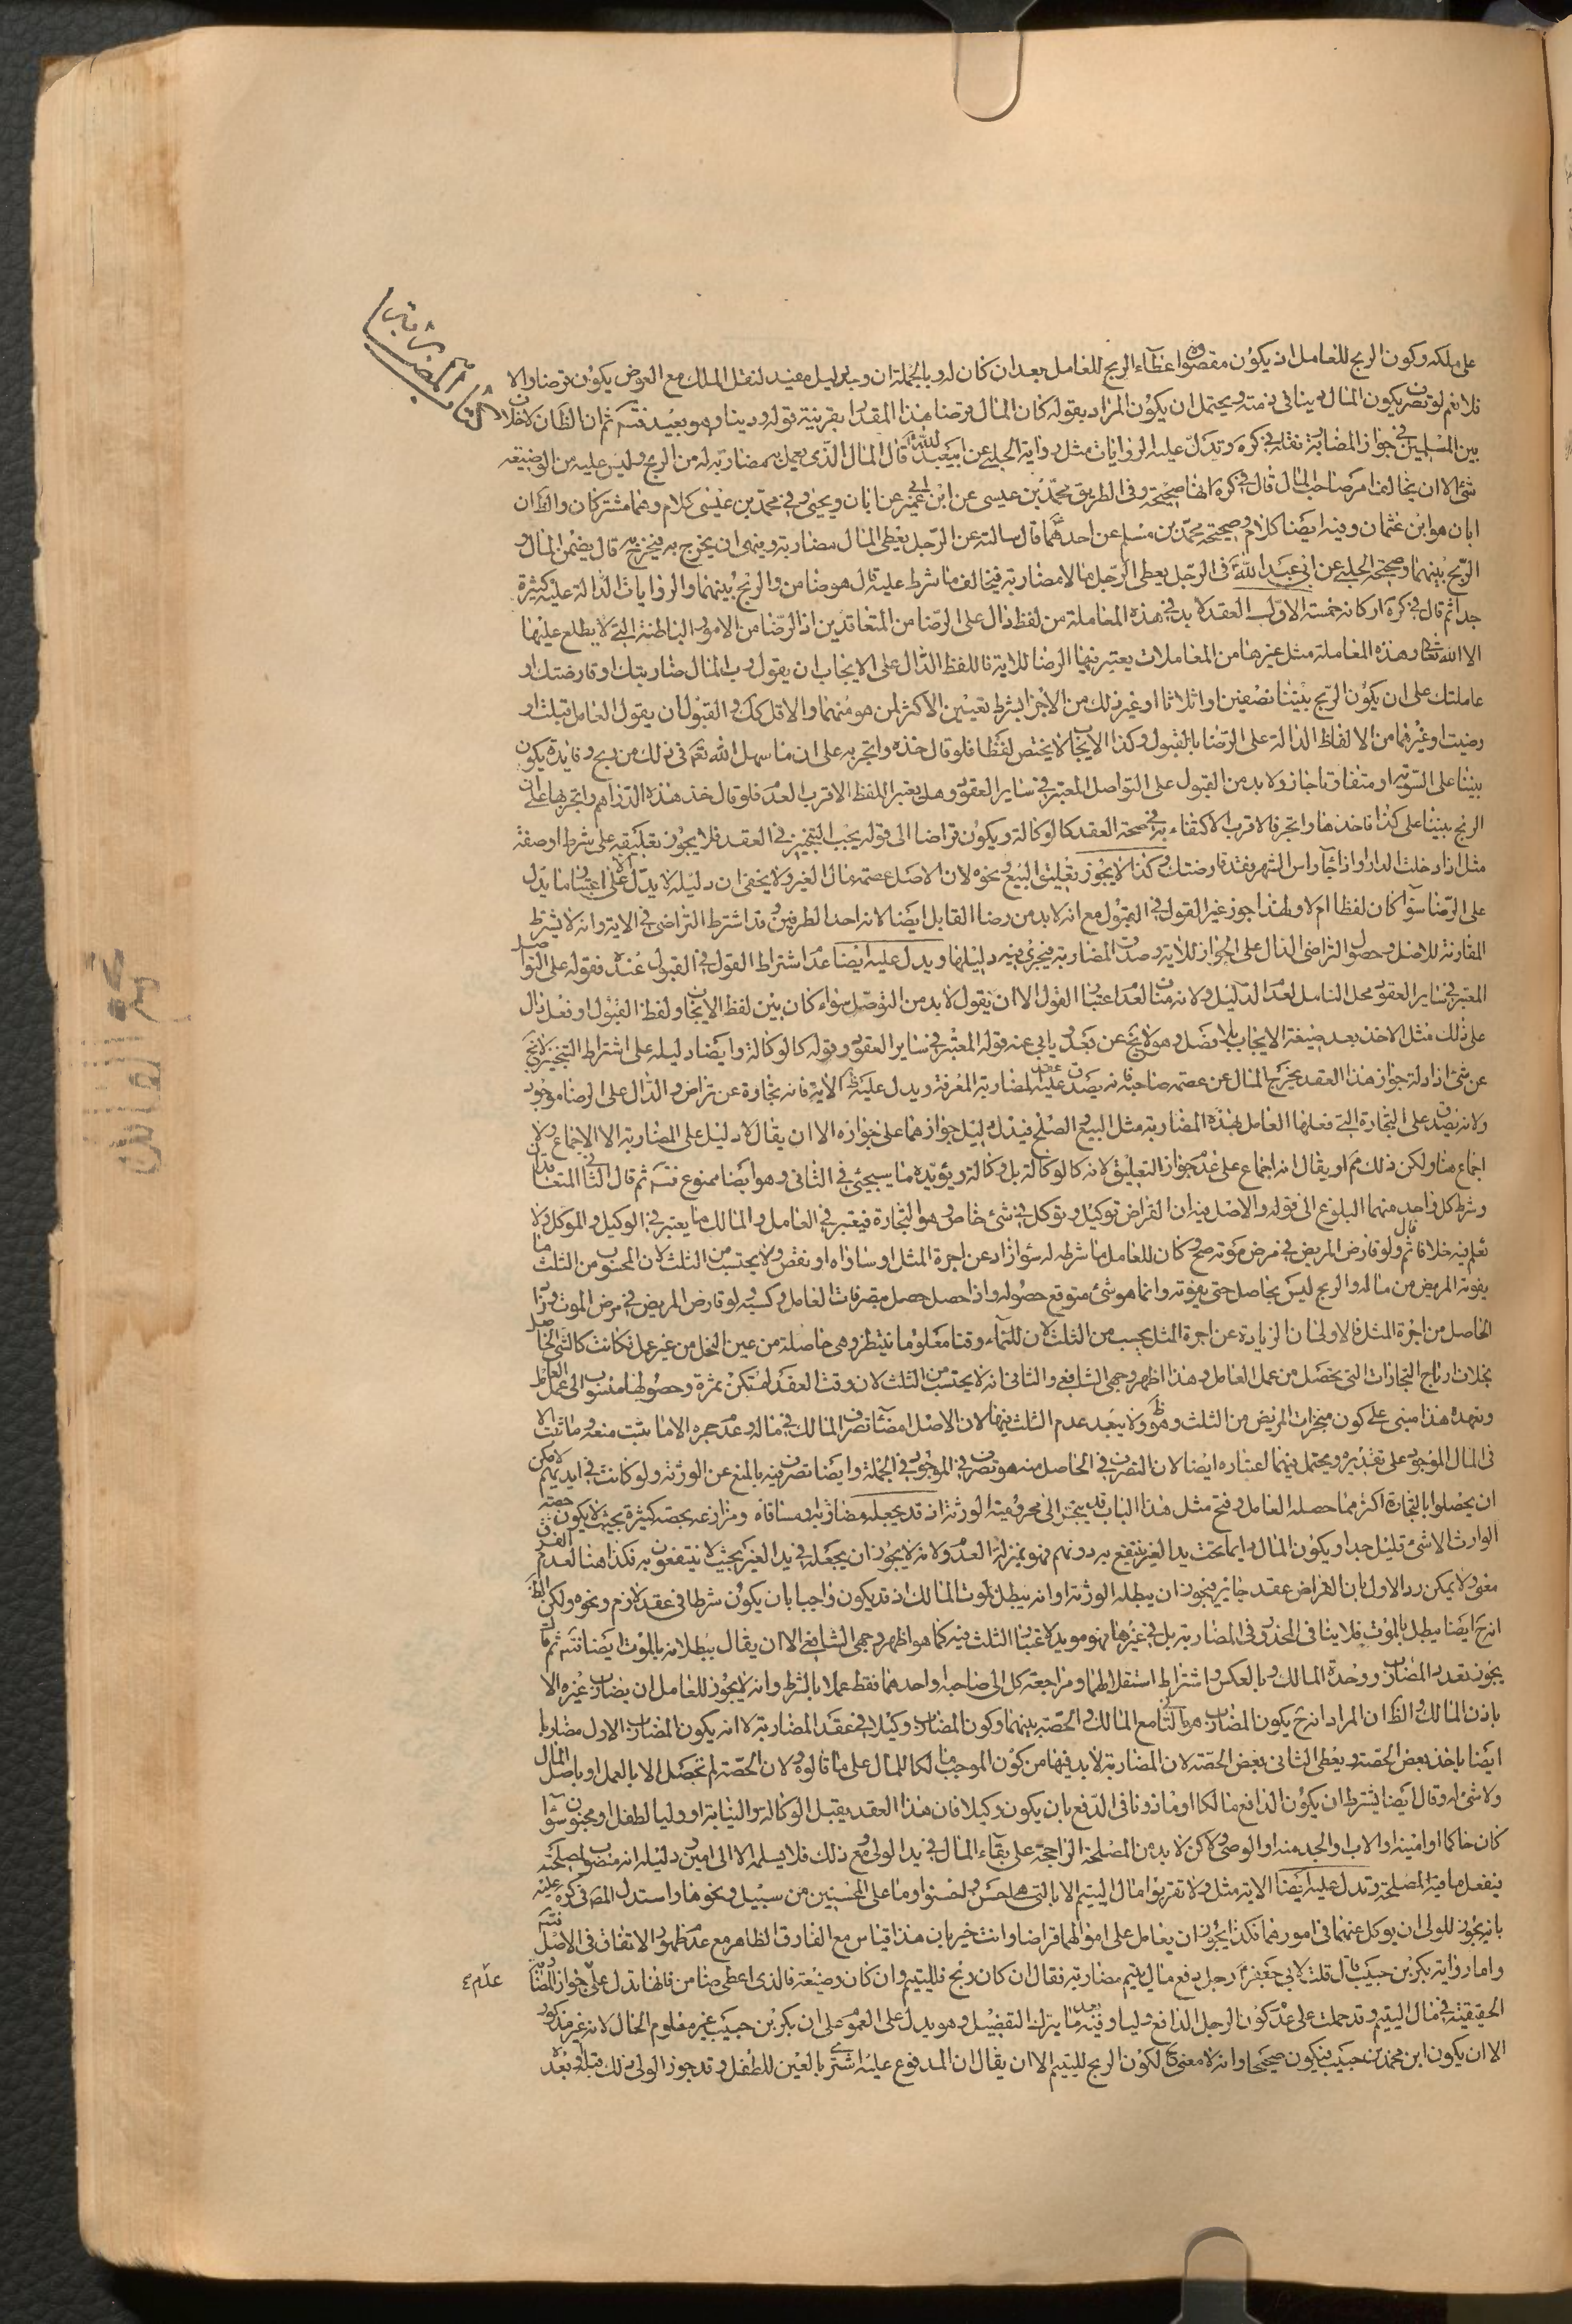 كتاب المضاربة
على ملكه وكون الربح للعامل اذ يكون مقصوده اعطاء الربح للعامل بعد ان كان له وبالجملة ان وجد دليل مفيد لنقل الملك مع العوض يكون قرضا والا
فلا نعم لو تصرف يكون المال دينا في ذمته ويحتمل ان يكون المراد بقوله كان المال قرضا هذا المقدار بقرينة قوله ودينا وهو بعيد فتئم ثم ان الظان لا خلاف
بين المسلمين في جواز المضاربة نقله في كره وتدل عليه الروايات مثل رواية الحلبي عن ابيعبد الله قال المال الذي يعمل به مضاربة له من الربح وليس عليه من الوضيعة
شئ الا ان يخالف امر صاحب المال قال في كره انها صحيحة وفي الطريق محمد بن عيسى عن ابن ابي عمير عن ابان ويحيى وفي محمد بن عيسى كلام وهما مشتركان والظ ان
ابان هو ابن عثمان وفيه ايضا كلام وصحيحة محمد بن مسلم عن احدهما قال سالته عن الرجل يعطى المال مضاربة وينهى ان يخرج به فيخرج به قال يضمن المال و
الربح بينهما وصحيحة الحلبي عن ابي عبد الله في الرجل يعطى الرجل مالا مضاربة فيخالف ما شرط عليه قال هو ضامن والربح بينهما والروايات الدالة عليه كثيرة
جدا ثم قال في كره اركانه خمسة الاول العقد لابد في هذه المعاملة من لفظ دال على الرضا من المتعاقدين اذ الرضا من الامور الباطنة التي لا يطلع عليها
الا الله تعالى وهذه المعاملة مثل غيرها من المعاملات يعتبر فيها الرضا للاية فاللفظ الدال على الايجاب ان يقول رب المال ضاربتك او قارضتك او
عاملتك على ان يكون الربح بيننا نصفين او اثلاثا او غير ذلك من الاجزا بشرط تعيين الاكثر لمن هو منهما والاقل كك والقبول ان يقول العامل قبلت او
رضيت او غيرهما من الالفاظ الدالة على الرضا بالقبول وكذا الايجاب لا يختص لفظا فلو قال خذه واتجر به على ان ما سهل الله تعم في ذلك من ربح وفايدة يكون
بيننا على السوية او متفاوتا جاز ولابد من القبول على التواصل المعتبر في ساير العقود وهل يعتبر اللفظ الاقرب العدم فلو قال خذ هذه الدراهم واتجر بها على ان
الربح بيننا على كذا فاخذها واتجر فالاقرب الاكتفاء به في صحة العقد كالوكالة ويكون قراضا الى قوله يجب التنجيز في العقد فلا يجوز تعليقه على شرط او صفة
مثل اذا دخلت الدار او اذا جآء راس الشهر فقد قارضتك وكذا لا يجوز تعليق البيع ونحوه لان الاصل عصمة مال الغير ولا يخفى ان دليله لا يدل الا على اعتبار ما يدل
على الرضا سوآء كان لفظا ام لا ولهذا جوز غير القول في القبول مع انه لابد من رضا القابل ايضا لانه احد الطرفين وقد اشترط التراضى في الاية وانه لا يشترط
المقارنة للاصل وحصول التراضى الدال على الجواز للاية وصدق المضاربة فيجرى فيه دليلها ويدل عليه ايضا عدم اشتراط القول في القبول عنده فقوله على التواصل
المعتبر في ساير العقود محل التامل لعدم الدليل ولانه مناف لعدم اعتبار القول الا ان يقول لابد من التوصل سواء كان بين لفظ الايجاب ولفظ القبول او فعل دال
على ذلك مثل الاخذ بعد صيغة الايجاب بلا فصل وهو لا يخ عن بعد ويابى عنه قوله المعتبر في ساير العقود وقوله كالوكالة وايضا دليله على اشتراط التنجيز لا يخ
عن شئ اذ ادلة جواز هذا العقد يخرج المال عن عصمة صاحبه فانه يصدق عليه عقد المضاربة المعرفة ويدل عليه الاية فانه تجارة عن تراض والدال على الرضا موجود
ولانه يصدق على التجارة التي فعلها العامل بهذه المضاربة مثل البيع الصلح فيدل دليل جوازهما على جوازه الا ان يقال لا دليل على المضاربة الا الاجماع ولا
اجماع هنا ولكن ذلك مم او يقال انه اجماع على عدم جواز التعليق لانه كالوكالة بل وكالة ويؤيده ما سيجئ في الثانى وهو ايضا ممنوع فتئم ثم قال الثاني المتعاقدان
وشرط كل واحد منهما البلوغ الى قوله والاصل فيه ان القراض توكيل وتوكل في شئ خاص وهو التجارة فيعتبر في العامل والمالك ما يعتبر في الوكيل والموكل ولا
نعلم فيه خلافا ثم قال ولو قارض المريض في مرض موته صح وكان للعامل ما شرط له سوآء زاد عن اجرة المثل او ساواه او نقص ولا يحتسب من الثلث لان المحسوب من الثلث ما
يفوته المريض من ماله والربح ليس بحاصل حتى يفوته وانما هو شئ متوقع حصوله واذا حصل حصل بتصرفات العامل وكسبه ولو قارض المريض في مرض الموت وزاد
الحاصل من اجرة المثل فالاولى ان الزيادة عن اجرة المثل يحسب من الثلث لان للنماء وقتا معلوما ينتظر وهى حاصلة من عين النخل من غير عمل فكانت كالشئ الحاصل
بخلاف ارباح التجارات التي تحصل من عمل العامل وهذا اظهر وجهى الشافعي والثانى انه لا يحتسب من الثلث لان وقت العقد لم تكن ثمرة وحصولها منسوب الى عمل العامل
وتعهده هذا مبنى على كون منجزات المريض من الثلث وهو ظ ولا يبعد عدم الثلث فيها لان الاصل امضآء تصرف المالك في ماله وعدم حجره الا ما يثبت منعه وما ثبت الا
في المال الموجود على تقديره ويحتمل فيهما اعتباره ايضا لان التصرف في الحاصل منه هو تصرف في الموجود في الجملة وايضا تصرف فيه بالمنع عن الورثة ولو كانت في ايديهم لامكن
ان يحصلوا بالتجارة اكثر مما حصله العامل وفتح مثل هذا الباب قد ينجر الى محرومية الورثة اذ قد يجعله مضاربة ومساقاه ومزارعه بحصة كثيرة بحيث لا يكون حصة
الوارث الا شئ قليل جدا ويكون المال دايما تحت يد الغير ينتفع به دونهم فهو بمنزلة العدم ولانه لا يجوز ان يجعله في يد الغير بحيث لا ينتفعون به فكذا هنا لعدم الفرق
معنى ولا يمكن رد الاول بان القراض عقد جايز فيجوز ان يبطله الورثة او انه يبطل بموت المالك اذ قد يكون واجبا بان يكون شرطا في عقد لازم ونحوه ولكن الظ
انه ح ايضا يبطل بالموت فلا ينافى المحذور في المضاربة بل في غيرها فهو مويد لاعتبار الثلث فيه كما هو اظهر وجهى الشافعي الا ان يقال ببطلانه بالموت ايضا فتئم ثم قال
يجوز تعدد المضارب ووحدة المالك وبالعكس واشتراط استقلالهما ومراجعة كل الى صاحبه او احدهما فقط عملا بالشرط وانه لا يجوز للعامل ان يضارب غيره الا
باذن المالك والظ ان المراد انه ح يكون المضارب هو الثاني مع المالك والحصة بينهما وكون المضارب وكيلا في عقد المضاربة لا انه يكون المضارب الاول مضاربا
ايضا ياخذ بعض الحصة ويعطى الثانى بعض الحصة لان المضاربة لابد فيها من كون الموجب مالكا للمال على ما قالوه ولان الحصة لم تحصل الا بالعمل او باصل المال
ولا شئ له وقال ايضا يشترط ان يكون الدافع مالكا او ماذونا في الدفع بان يكون وكيلا فان هذا العقد يقبل الوكالة والنيابة او وليا لطفل او مجنون سوآء
كان حاكما او امينه او الاب والجد منه او الوصى ولكن لابد من المصلحة الراجحة على بقآء المال في يد الولى ومع ذلك فلا يسلمه الا الى امين ودليله انه منصوب لمصلحته
فيفعل ما فيه المصلحة وتدل عليه ايضا الاية مثل ولا تقربوا مال اليتيم الا بالتي هى احسن واحسنوا وما على المحسنين من سبيل ونحوها واستدل المص في كره عليه
بانه يجوز للولى ان يوكل عنهما في امورهما فكذا يجوز ان يعامل على اموالهما قراضا وانت خبير بان هذا قياس مع الفارق الظاهر مع عدم ظهور الاتفاق في الاصل فتئم
واما رواية بكر بن حبيب قال قلت لابي جعفر رجل دفع مال يتيم مضاربة فقال ان كان ربح فلليتيم وان كان وضيعة فالذى اعطى ضامن فانها تدل على عدم جواز المضاربة
الحقيقية في مال اليتيم وقد حملت على عدم كون الرجل الدافع وليا وفيه بعد ما بترك التفصيل وهو يدل على العموم على ان بكر بن حبيب غير معلوم الحال لانه غير مذكور
الا ان يكون ابن محمد بن حبيب فيكون صحيحا وانه لا معنى ح لكون الربح لليتيم الا ان يقال ان المدفوع عليه اشترى بالعين للطفل وقد جوز الولى ذلك قبله او بعده